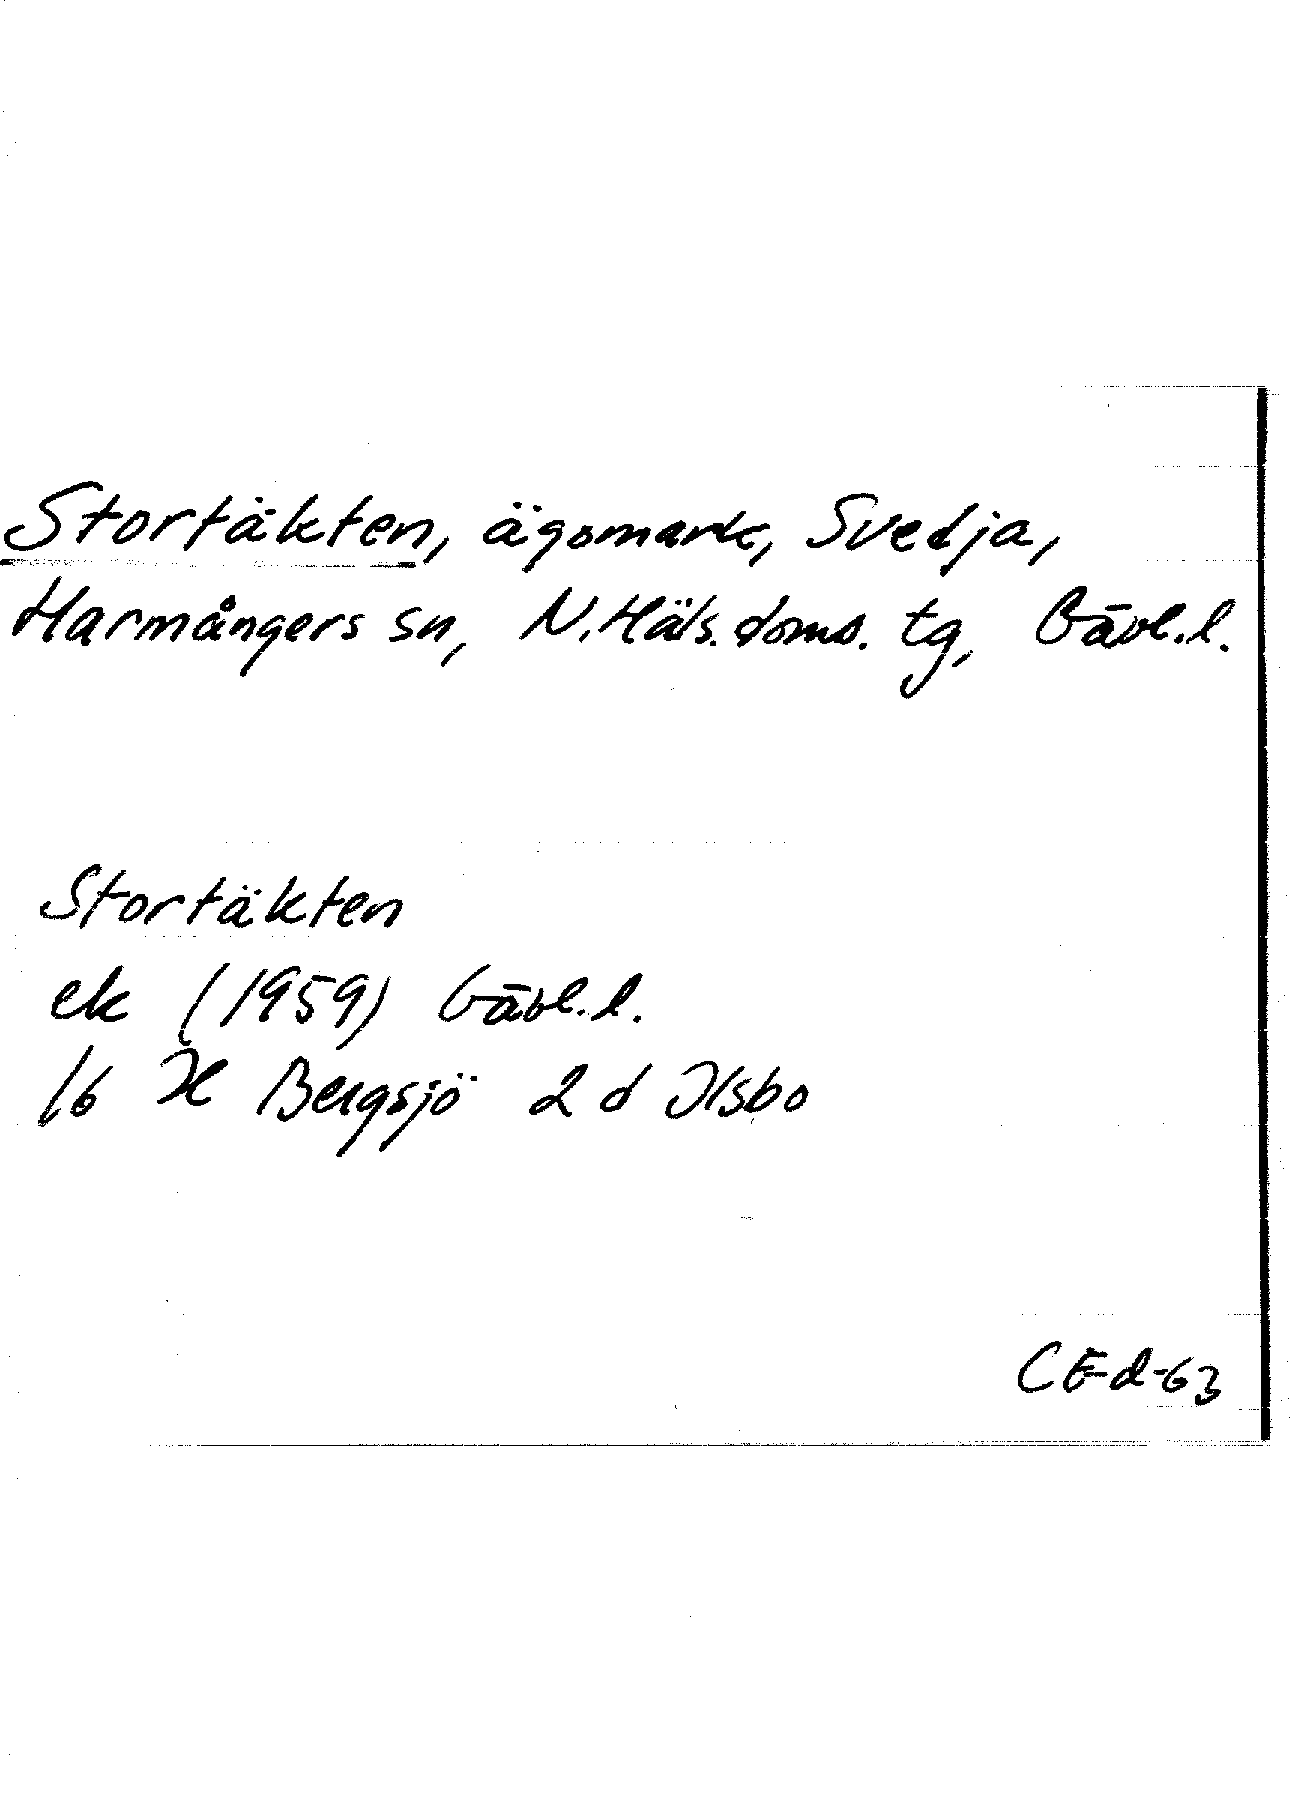 Stortäkten, ägomark, Svedja,
Harmångers sn, N. Häls. doms. tg, Gävl.l.
Stortäkten
ek (1959) Gävl.l.
16 H Bergsjö 2 d Ilsbo
CE-d-63